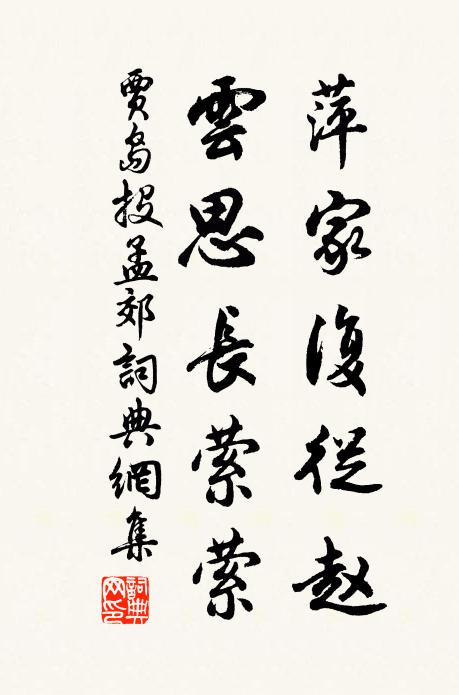 萍家復從赵
雲思長萦萦
賈島投孟郊詞典網集
詞典
网印